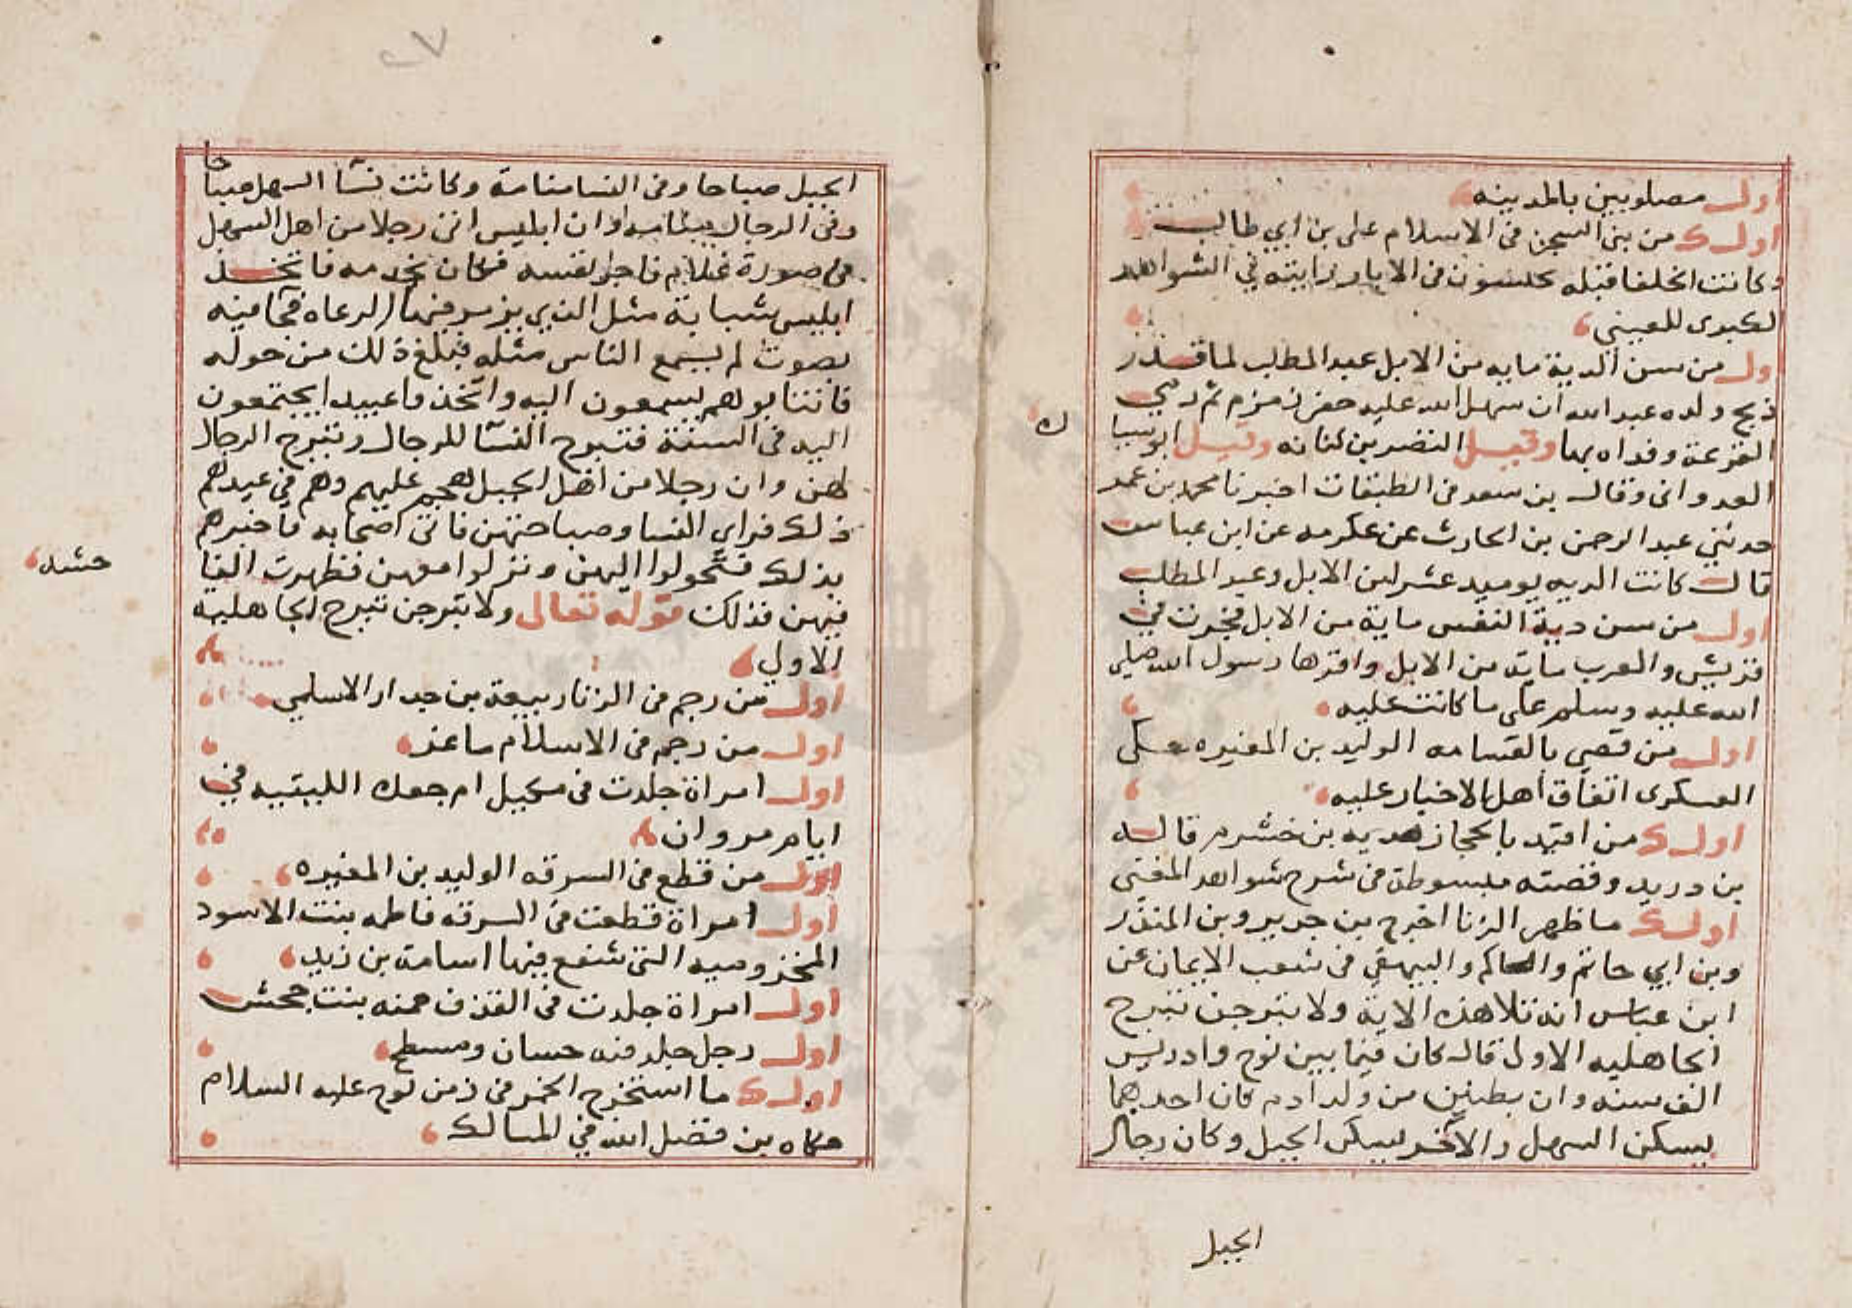 اول مصلوبين بالمدينه
اول من بنى السجن فى الاسلام على بن ابي طالب
وكانت الخلفا قبله يحبسون فى الابار رايته في الشواهد
الكبرى للعينى
اول من سن الدية مايه من الابل عبد المطلب لما نذر
ذبح ولده عبد الله ان سهل الله عليه حفر زمزم ثم رمي
القرعة وفداه بها وقيل النضر بن كنانه وقيل ابو سيا
له
العدوانى وقال بن سعد فى الطبقات اخبرنا محمد بن عمر
حدثني عبد الرحمن بن الحارث عن عكرمه عن ابن عباس
قال كانت الديه يوميد عشر من الابل وعبد المطلب
اول من سن دية النفس ماية من الابل فجرت في
قريش والعرب ماية من الابل واقرها رسول الله صلى
الله عليه وسلم على ما كانت عليه
اول من قضي بالقسامه الوليد بن المغيره حكى
العسكرى اتفاق اهل الاخبار عليه
اول من اقيد بالحجاز هدبه بن خشرم قاله
بن دريد وقصته مبسوطة فى شرح شواهد المغنى
اول ما ظهر الزنا اخرج بن جرير وبن المنذر
وبن ابي حاتم والحاكم والبيهقي فى شعب الايمان عن
ابن عباس انه تلا هذه الاية ولا تبرجن تبرج
الجاهليه الاولى قال كان فيما بين نوح وادريس
الف سنه وان بطنين من ولد ادم كان احدهما
يسكن السهل والآخر يسكن الجبل وكان رجال
الجبل
٢٧
الجبل صباحا وفى النسا دمامة وكانت نسا السهل صباحا
وفى الرجال دمامه وان ابليس اتى رجلا من اهل السهل
فى صورة غلام فاجر نفسه فكان يخدمه فاتخذ
ابليس شبابة مثل الذي يزمر فيها الرعاه فجا فيه
بصوت لم يسمع الناس مثله فبلغ ذلك من حوله
فانتابوهم يسمعون اليه واتخذوا عيدا يجتمعون
اليه فى السنة فتبرح النسا للرجال وتتبرج الرجال
لهن وان رجلا من اهل الجبل هجم عليهم وهم في عيدهم
ذلك فراى النسا وصباحتهن فاتى اصحابه فاخبرهم
بذلك فتحولوا اليهن ونزلوا معهن فظهرت الفا
حشه
فيهن فذلك قوله تعالى ولا تبرجن تبرج الجاهليه
الاولي
اول من رجم فى الزنا ربيعة بن حدار الاسلمي
اول من رجم فى الاسلام ماعز
اول امراة جلدت فى مكبيل ام جعك الليتيه في
ايام مروان
اول من قطع فى السرقه الوليد بن المغيره
اول امراة قطعت فى السرقه فاطمه بنت الاسود
المخزوميه التى شفع فيها اسامة بن زيد
اول امراة جلدت فى القذف حمنه بنت جحش
اول رجل جلد فيه حسان ومسطح
اول ما استخرج الخمر فى زمن نوح عليه السلام
حكاه بن فضل الله في المسالك